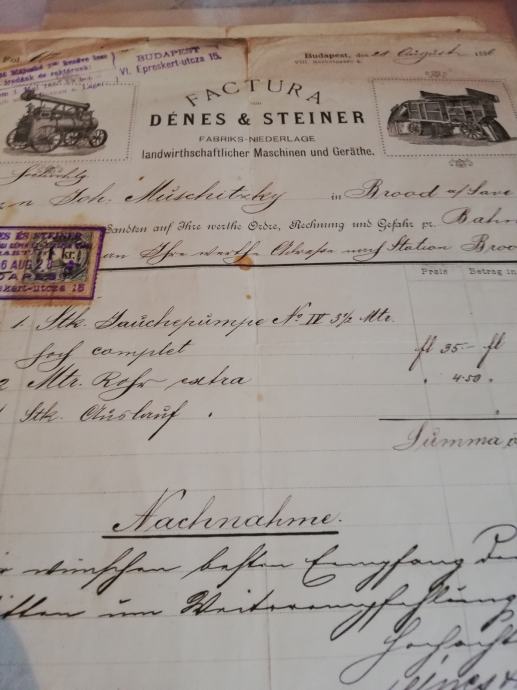 Fol.
BUDAPEST
VI. Epreskert-utcza 15.
Budapest, den 21 August
FACTURA
von
DÉNES & STEINER
FABRIKS-NIEDERLAGE
landwirthschaftlicher Maschinen und Geräthe.
Joh. Muschitzky in Brood a/Save
Sandten auf Ihre werthe Ordre, Rechnung und Gefahr pr. Bahn
an Ihre werthe Adresse nach Station Brood
ÉS STEINER
AUG 2
kr.
Preis Betrag in
1 Stk. Jauchepumpe No IV 3½ Mtr.
hoch complet fl 35.- fl
2 Mtr. Rohr extra " 4.50 "
1 Stk. Auslauf "
Summa
Nachnahme.
wünschen besten Empfang
bitten um Weiterempfehlung